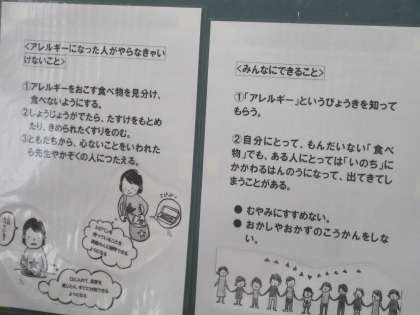 <アレルギーになった人がやらなきゃい
けないこと>
①アレルギーをおこす食べ物を見分け、
食べないようにする。
②しょうじょうがでたら、たすけをもとめ
たり、きめられたくすりをのむ。
③ともだちから、心ないことをいわれた
ら先生やかぞくの人につたえる。
<みんなにできること>
①「アレルギー」というびょうきを知って
もらう。
②自分にとって、もんだいない「食べ
物」でも、ある人にとっては「いのち」に
かかわるはんのうになって、出てきてし
まうことがある。
● むやみにすすめない。
● おかしやおかずのこうかんをしな
い。